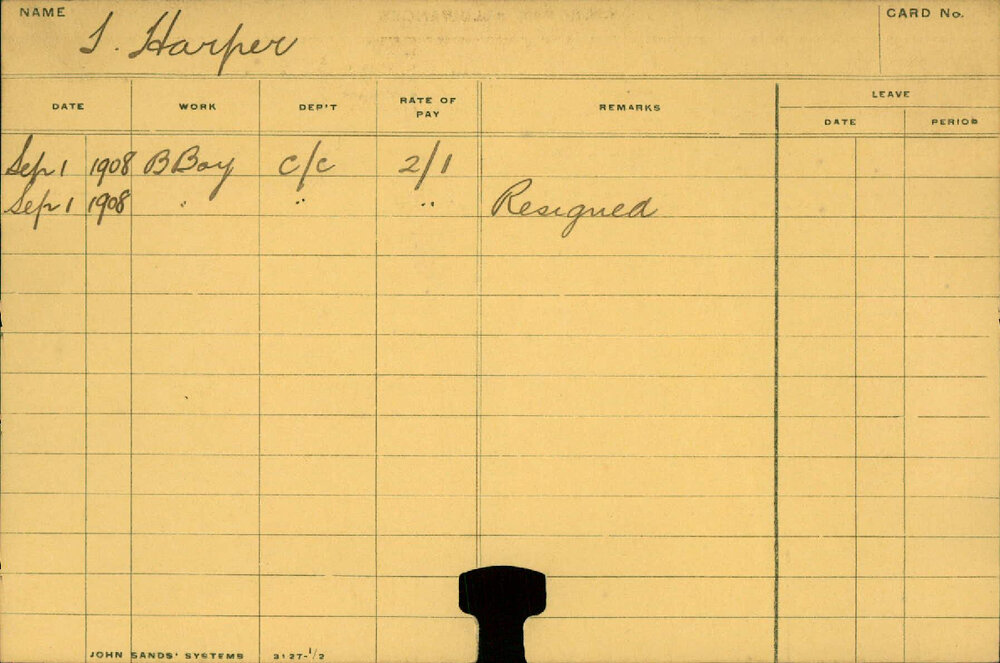 NAME CARD No.
S. Harper
DATE WORK DEP'T RATE OF PAY REMARKS LEAVE
DATE PERIOD
Sep 1 1908 B Boy C/C 2/1
Sep 1 1908 " " " Resigned
JOHN SANDS' SYSTEMS 3127-1/2